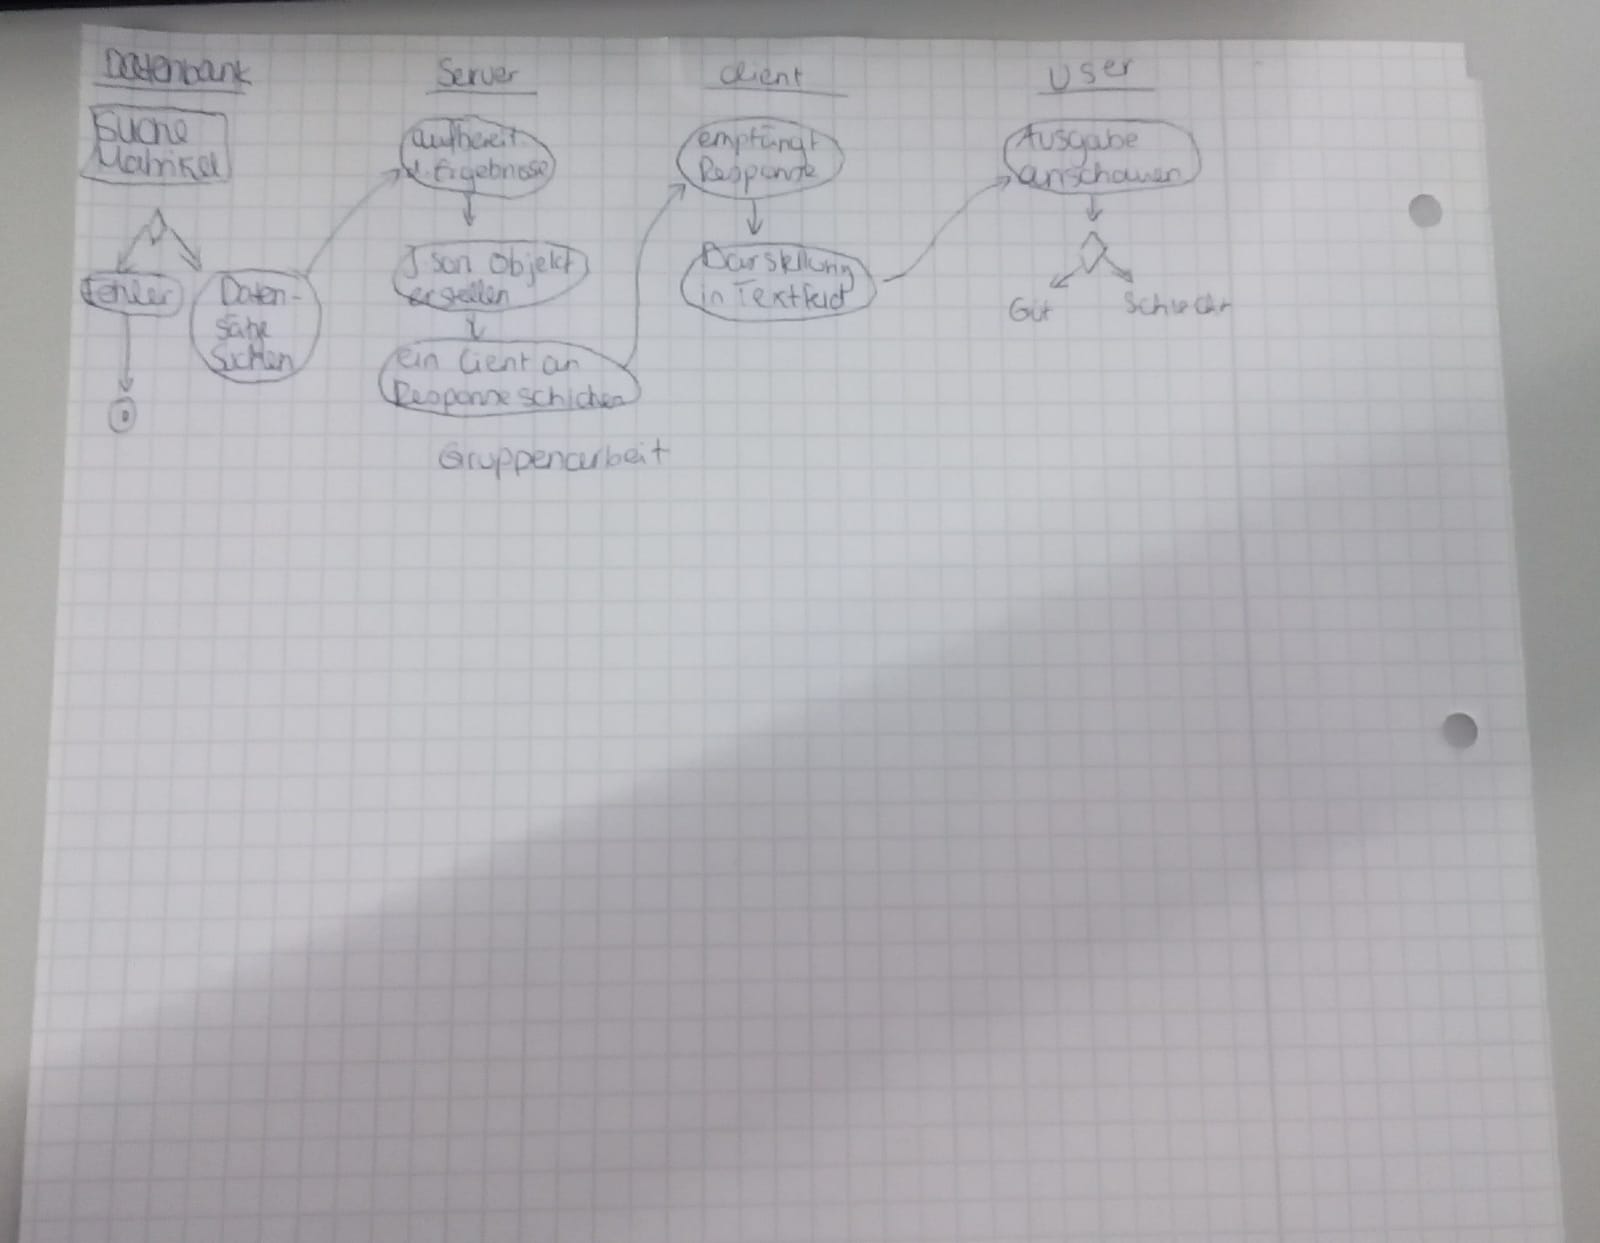 Datenbank
Suche
Matrikel
Fehler
Daten-
sätze
Suchen
Server
aufbereit.
d. Ergebnose
Json Objekt
erstellen
ein Cient an
Response schicken
Gruppenarbeit
Client
empfängt
Response
Darstellung
in Textfeld
User
Ausgabe
anschauen
Gut
Schlecht